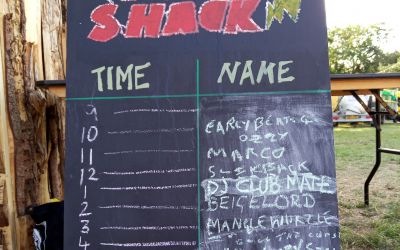 SHACK
TIME NAME
9
10 EARLY BEATS &
OZZY
11 MARCO
12 SLICKBACK
1 DJ CLUB MATE
2 BEIGELORD
3 MANGLEWURZLE
4